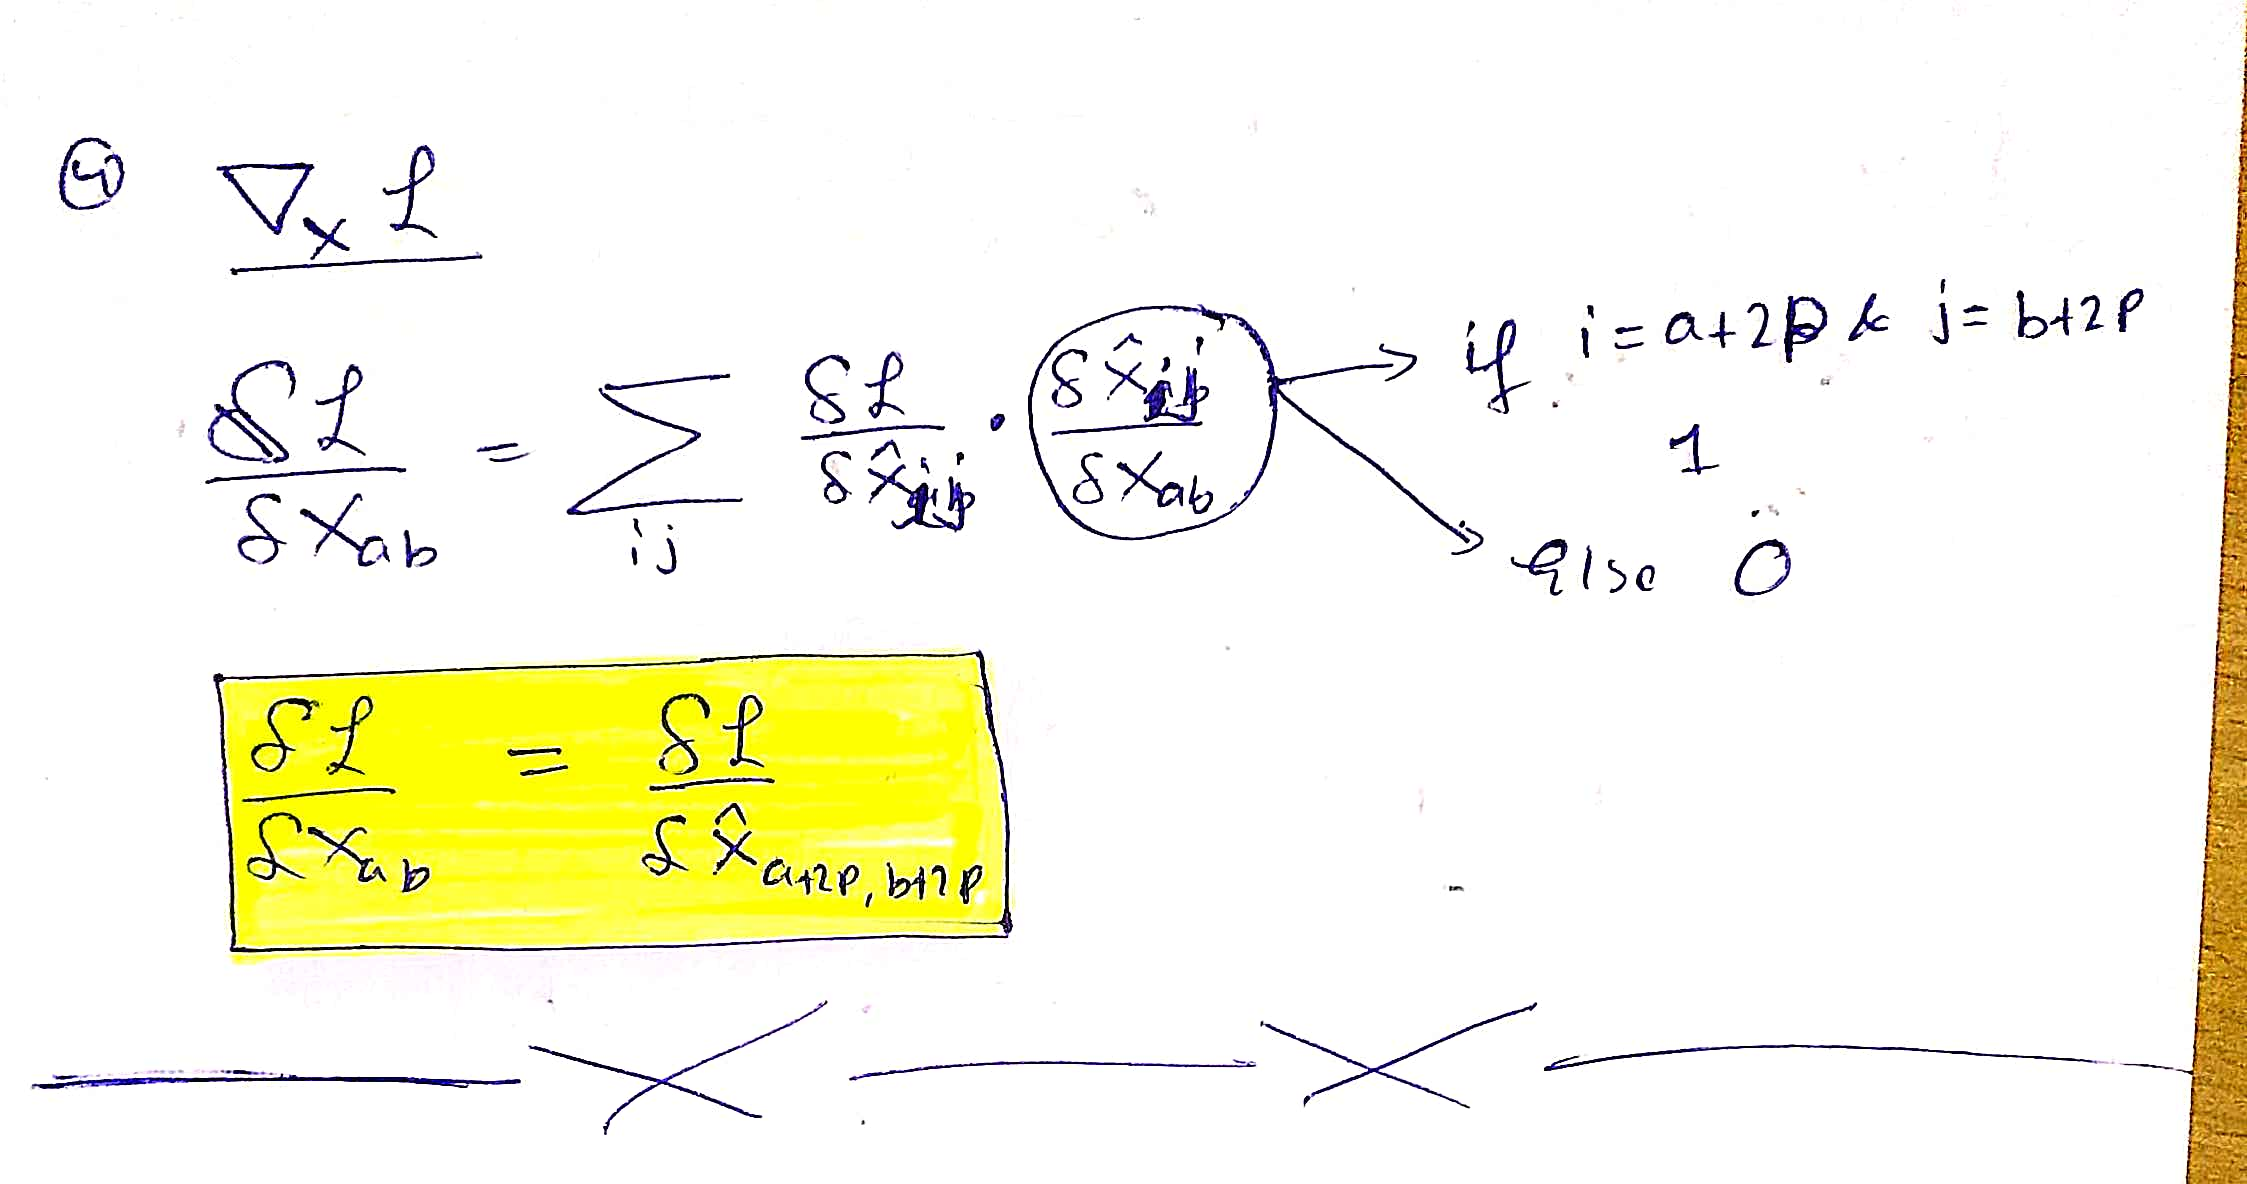 ④ ∇ₓ ℒ
δℒ/δX_ab = Σ_ij δℒ/δX̂_ij · δX̂_ij/δX_ab → if i = a+2p & j = b+2p
1
→ else 0
δℒ/δX_ab = δℒ/δX̂_a+2p, b+2p